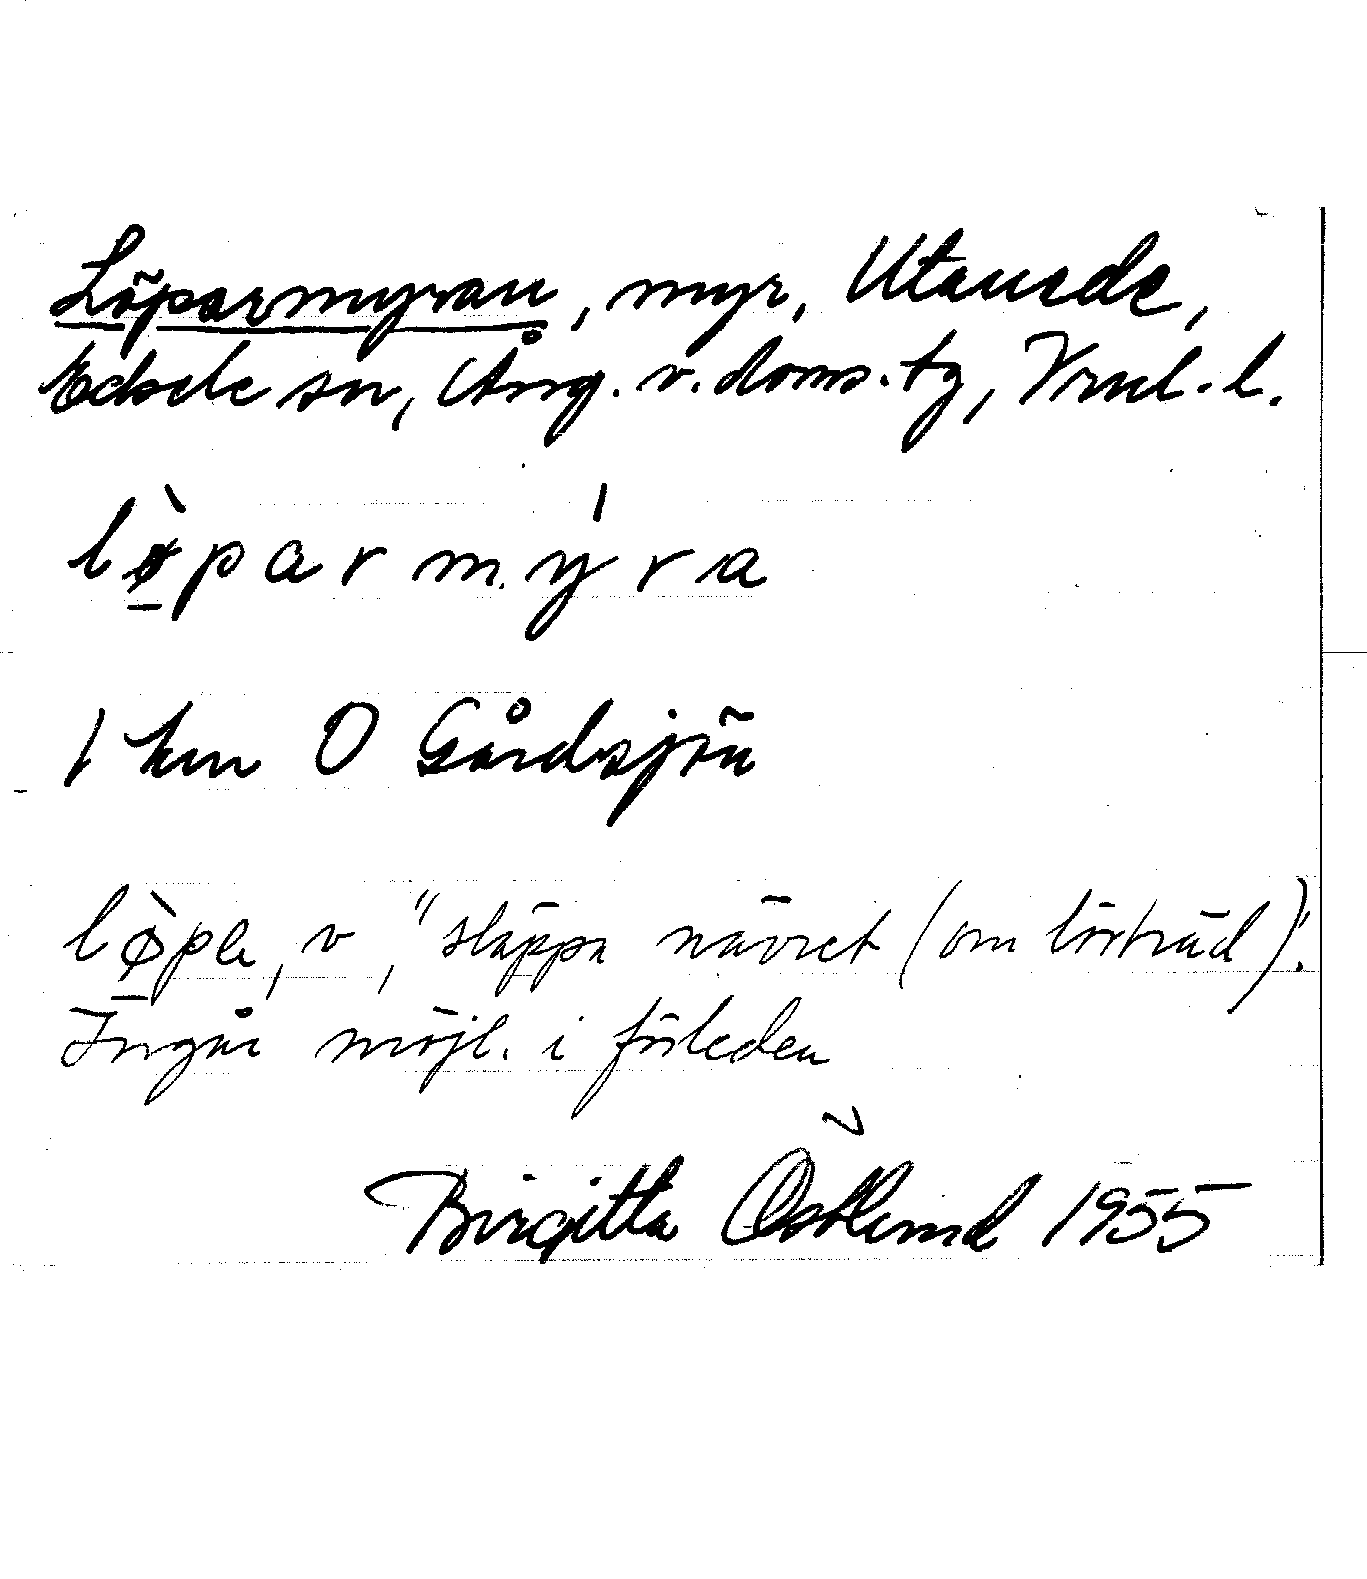 Löparmyran, myr, Utanede,
Edsele sn, Ång. v. doms. tg, Vrnl. l.
lø̱̀parmýra
1 km O Gårdsjön
lø̱̀pa, v, "släppa nävret (om lövträd)".
Ingår möjl. i förleden
Birgitta Östlund 1955